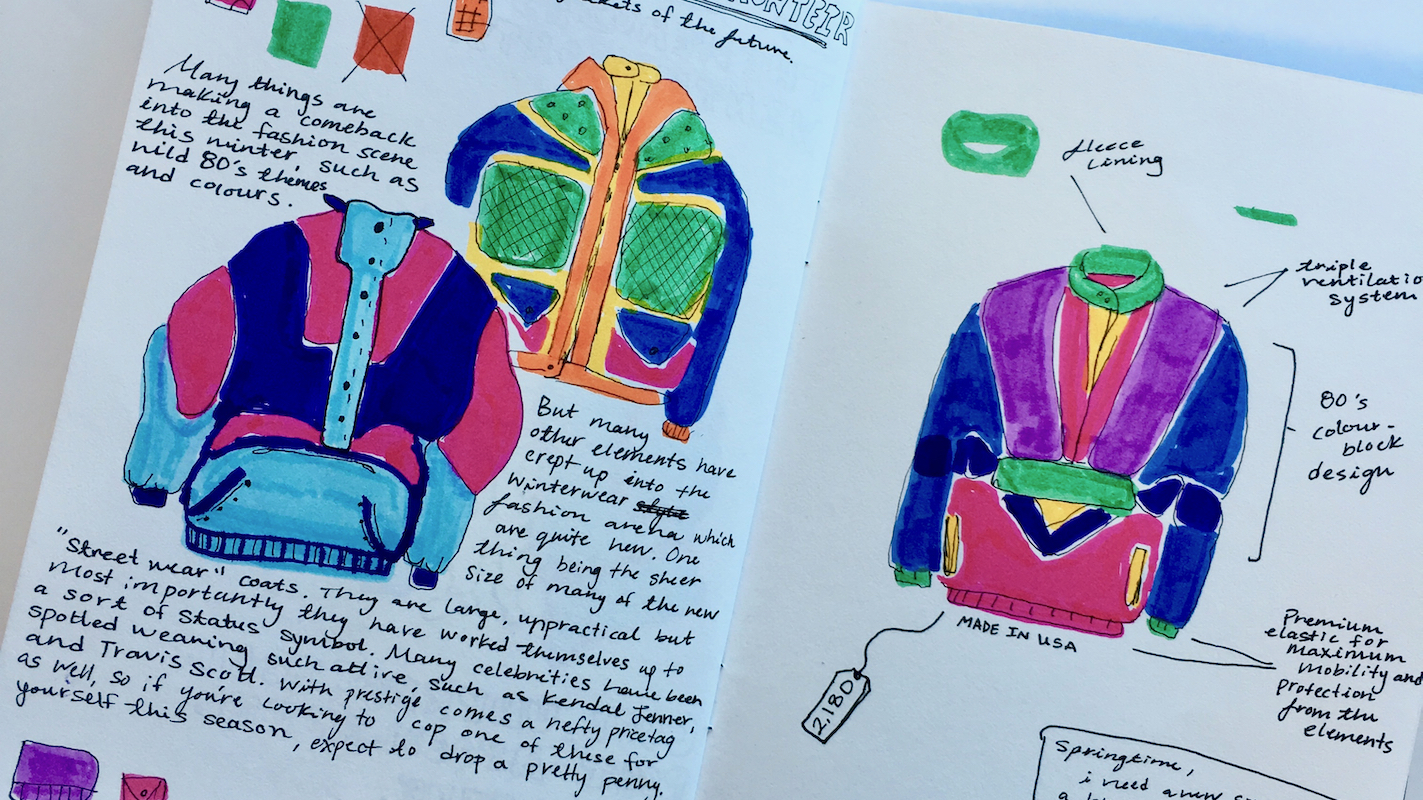 of the future.
Many things are
making a comeback
into the fashion scene
this winter, such as
wild 80's themes
and colours.
But many
other elements have
crept up into the
winterwear style
fashion arena which
are quite new. One
thing being the sheer
size of many of the new
"street wear" coats. They are large, unpractical but
most importantly they have worked themselves up to
a sort of status symbol. Many celebrities have been
spotted wearing such attire, such as Kendal Jenner,
and Travis Scott. With prestige comes a hefty pricetag
as well, so if you're looking to cop one of these for
yourself this season, expect to drop a pretty penny.
fleece
lining
triple
ventilatio
system
80's
colour-
block
design
MADE IN USA
2,180
Premium
elastic for
maximum
mobility and
protection
from the
elements
Springtime,
i need a new